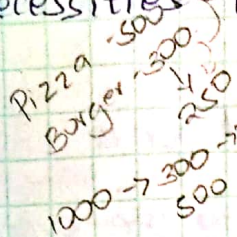 Pizza - 500
Burger - 300
↓
250
1000 → 300 →
500